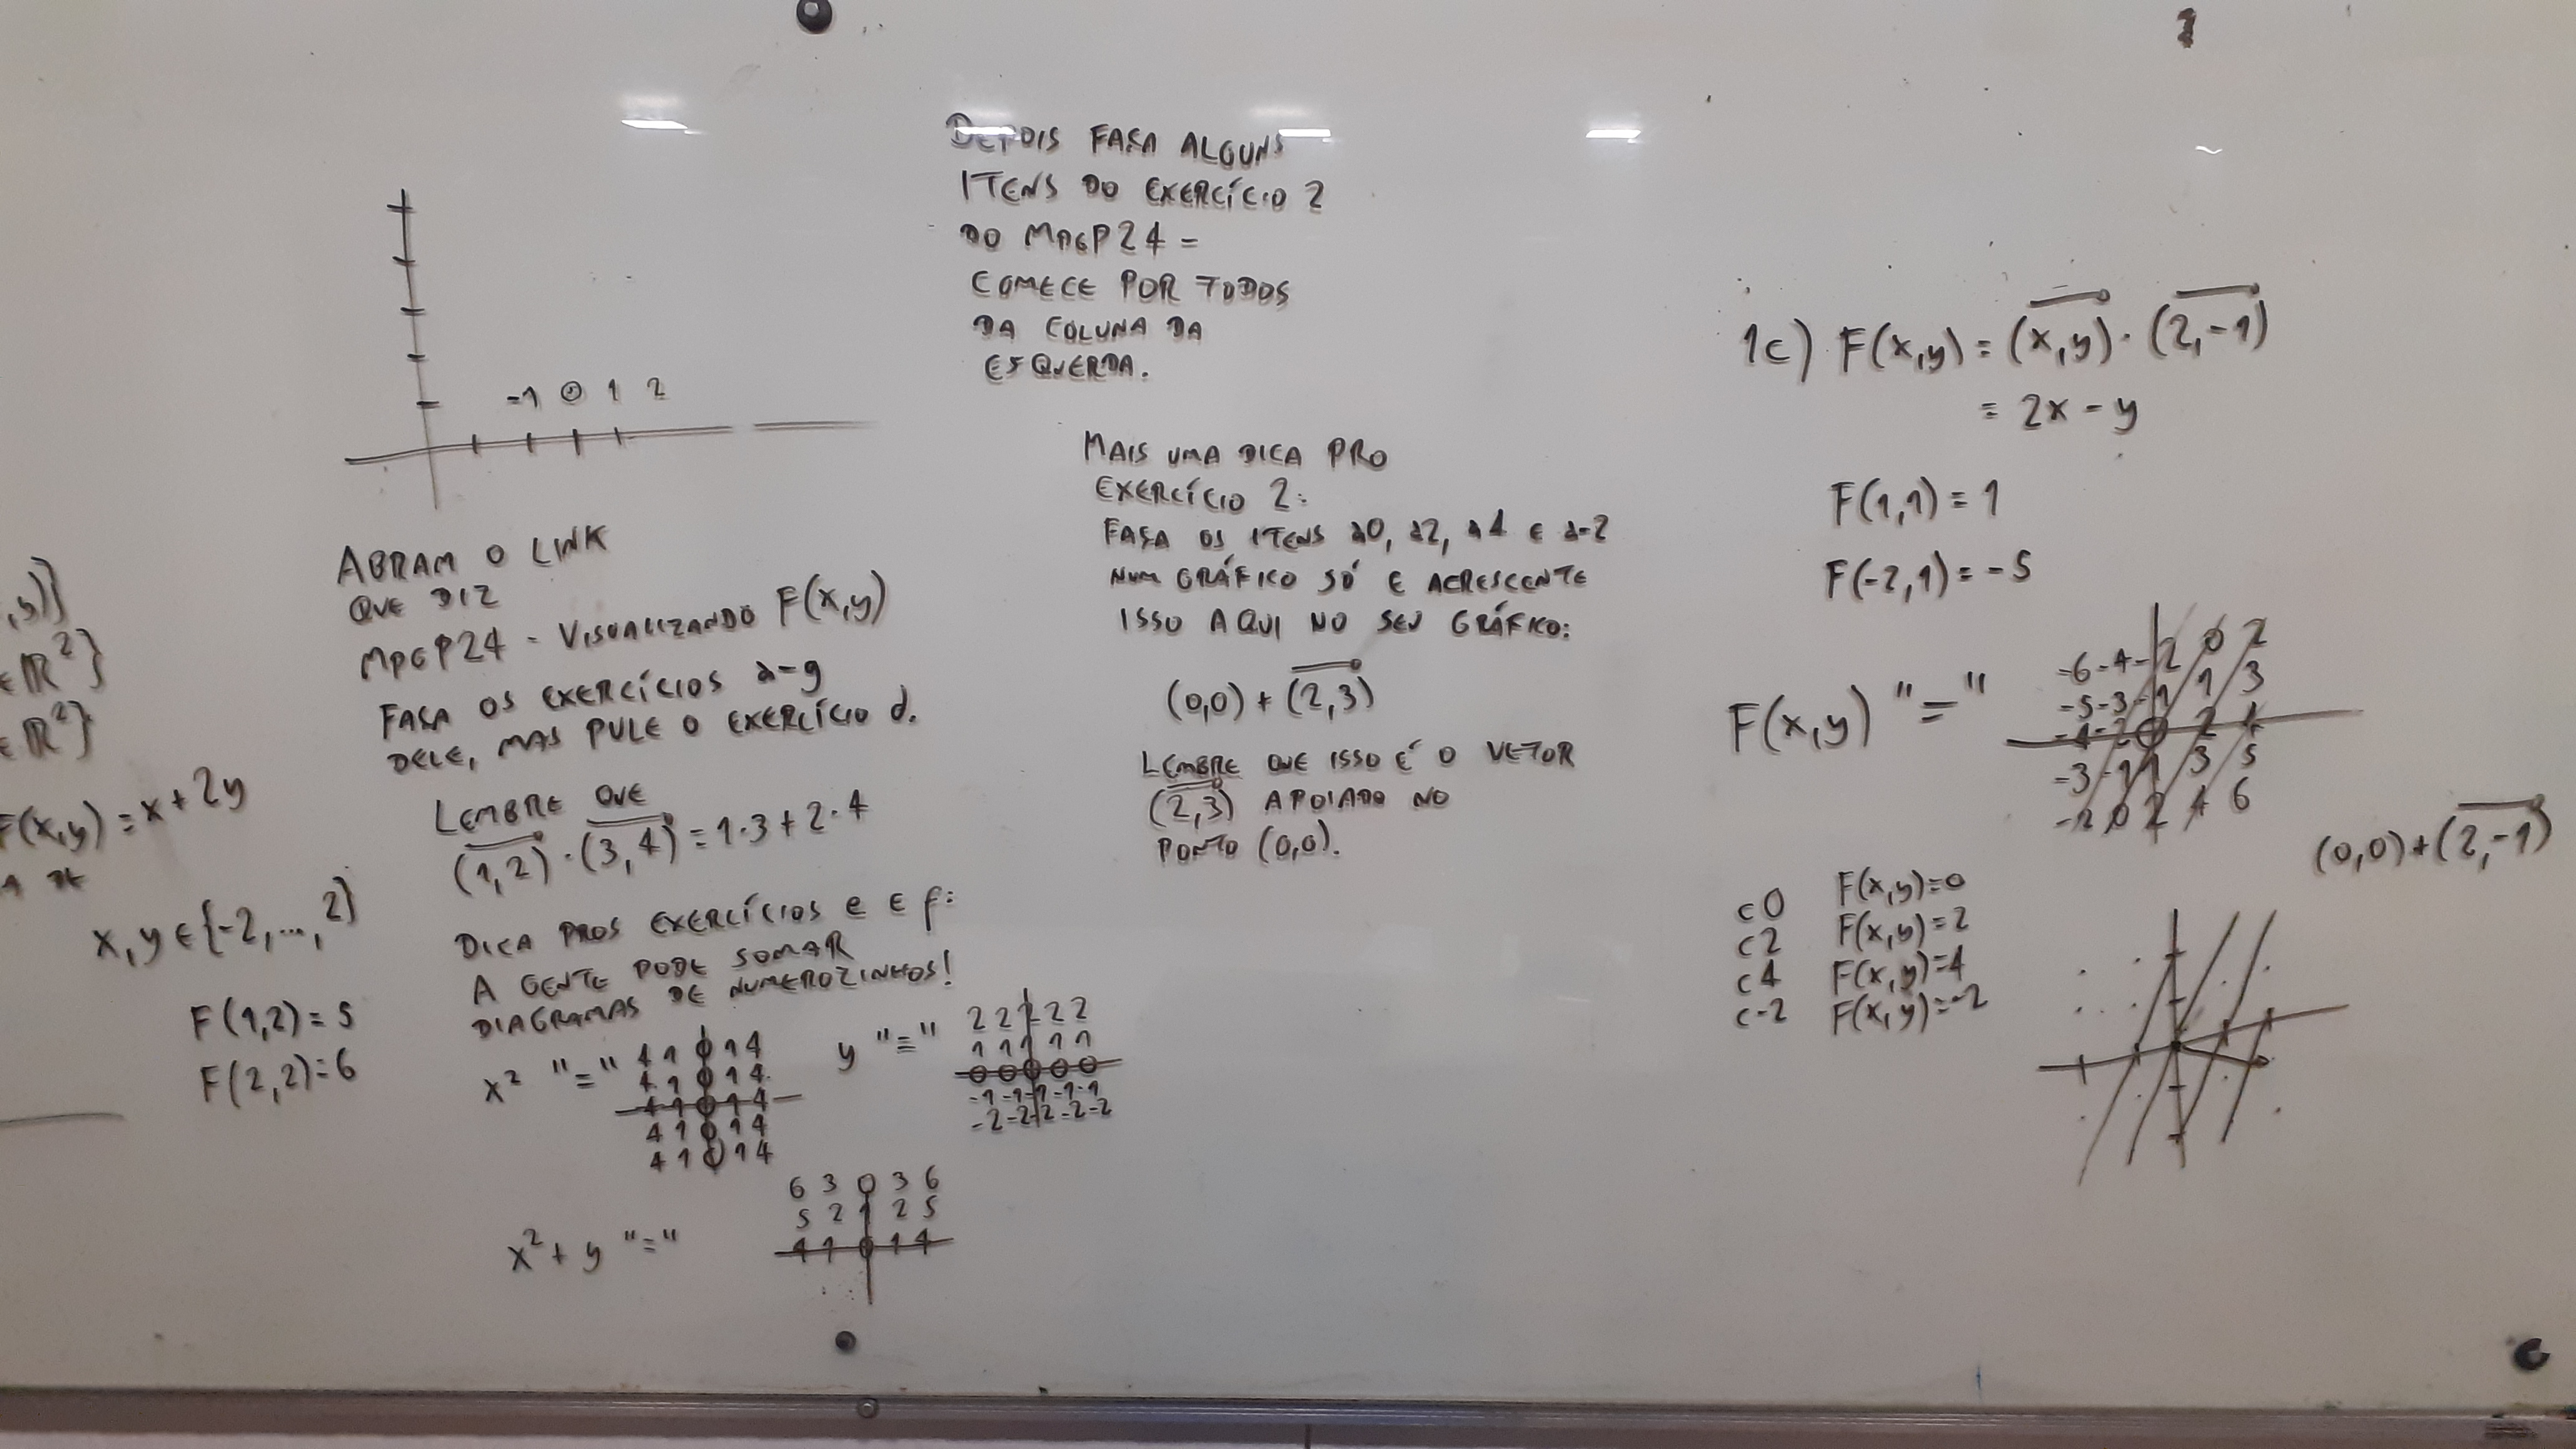 -1 0 1 2
,y)}
∈ ℝ²}
∈ ℝ²}
F(x,y) = x + 2y
x, y ∈ {-2, ..., 2}
F(1,2) = 5
F(2,2) = 6
ABRAM O LINK
QUE DIZ
MPGP24 - VISUALIZANDO F(x,y)
FAÇA OS EXERCÍCIOS a-g
DELE, MAS PULE O EXERCÍCIO d.
LEMBRE QUE
(1,2) · (3,4) = 1·3 + 2·4
DICA PROS EXERCÍCIOS e E f:
A GENTE PODE SOMAR
DIAGRAMAS DE NUMEROZINHOS!
x² "="
4 1 0 1 4
4 1 0 1 4
4 1 0 1 4
4 1 0 1 4
4 1 0 1 4
y "="
2 2 2 2 2
1 1 1 1 1
0 0 0 0 0
-1 -1 -1 -1 -1
-2 -2 -2 -2 -2
x² + y "="
6 3 0 3 6
5 2 1 2 5
4 1 0 1 4
DEPOIS FAÇA ALGUNS
ITENS DO EXERCÍCIO 2
DO MPGP24 -
COMECE POR TODOS
DA COLUNA DA
ESQUERDA.
MAIS UMA DICA PRO
EXERCÍCIO 2:
FAÇA OS ITENS a0, a2, a4 E a-2
NUM GRÁFICO SÓ E ACRESCENTE
ISSO AQUI NO SEU GRÁFICO:
(0,0) + (2,3)
LEMBRE QUE ISSO É O VETOR
(2,3) APOIADO NO
PONTO (0,0).
1c) F(x,y) = (x,y) · (2,-1)
= 2x - y
F(1,1) = 1
F(-2,1) = -5
F(x,y) "="
-6 -4 -2 0 2
-5 -3 -1 1 3
-4 -2 0 2 4
-3 -1 1 3 5
-2 0 2 4 6
(0,0) + (2,-1)
c0 F(x,y)=0
c2 F(x,y)=2
c4 F(x,y)=4
c-2 F(x,y)=-2